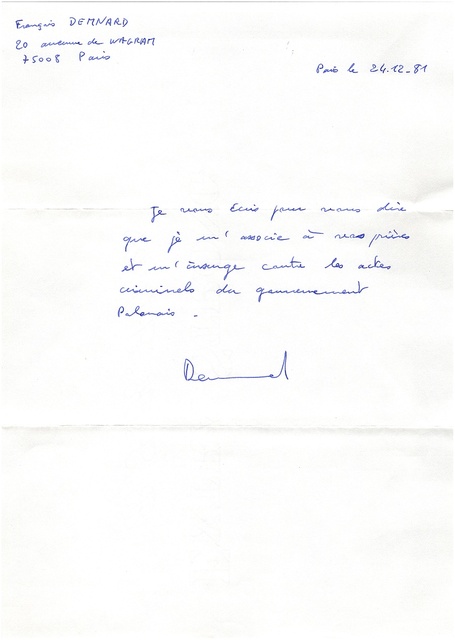 François DEMNARD
20 avenue de WAGRAM
75008 Paris
Paris le 24.12_81
Je vous écris pour vous dire
que je m'associe à vos prières
et m'insurge contre les actes
criminels du gouvernement
Polonais.